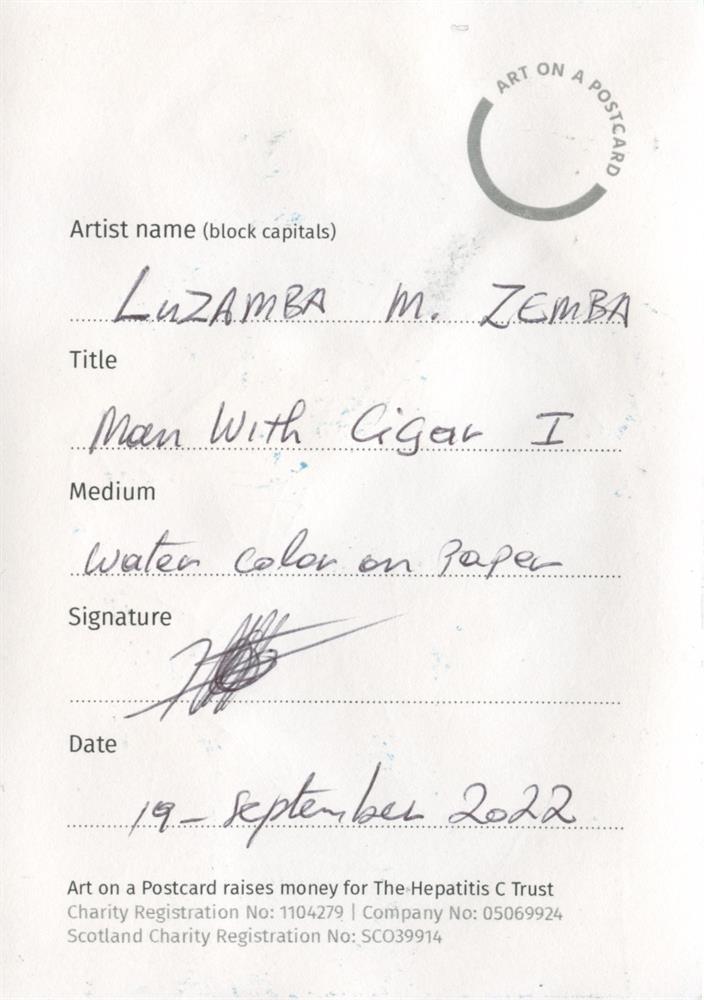 ART ON A POSTCARD
Artist name (block capitals)
LuZAMBA M. ZEMBA
Title
Man With Cigar I
Medium
water color on Paper
Signature
Date
19 - September 2022
Art on a Postcard raises money for The Hepatitis C Trust
Charity Registration No: 1104279 | Company No: 05069924
Scotland Charity Registration No: SCO39914